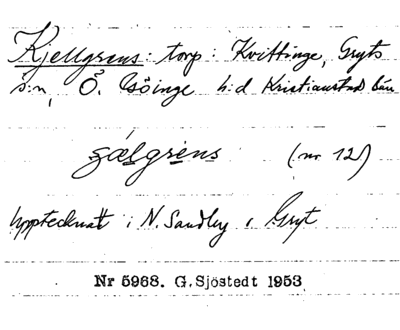 Kjellgrens: torp: Kvittinge, Gryts
s:n, Ö. Göinge h:d Kristianstad län
gælgrèns (nr 12)
Upptecknat i N. Sandby i Gryt
Nr 5968. G. Sjöstedt 1953